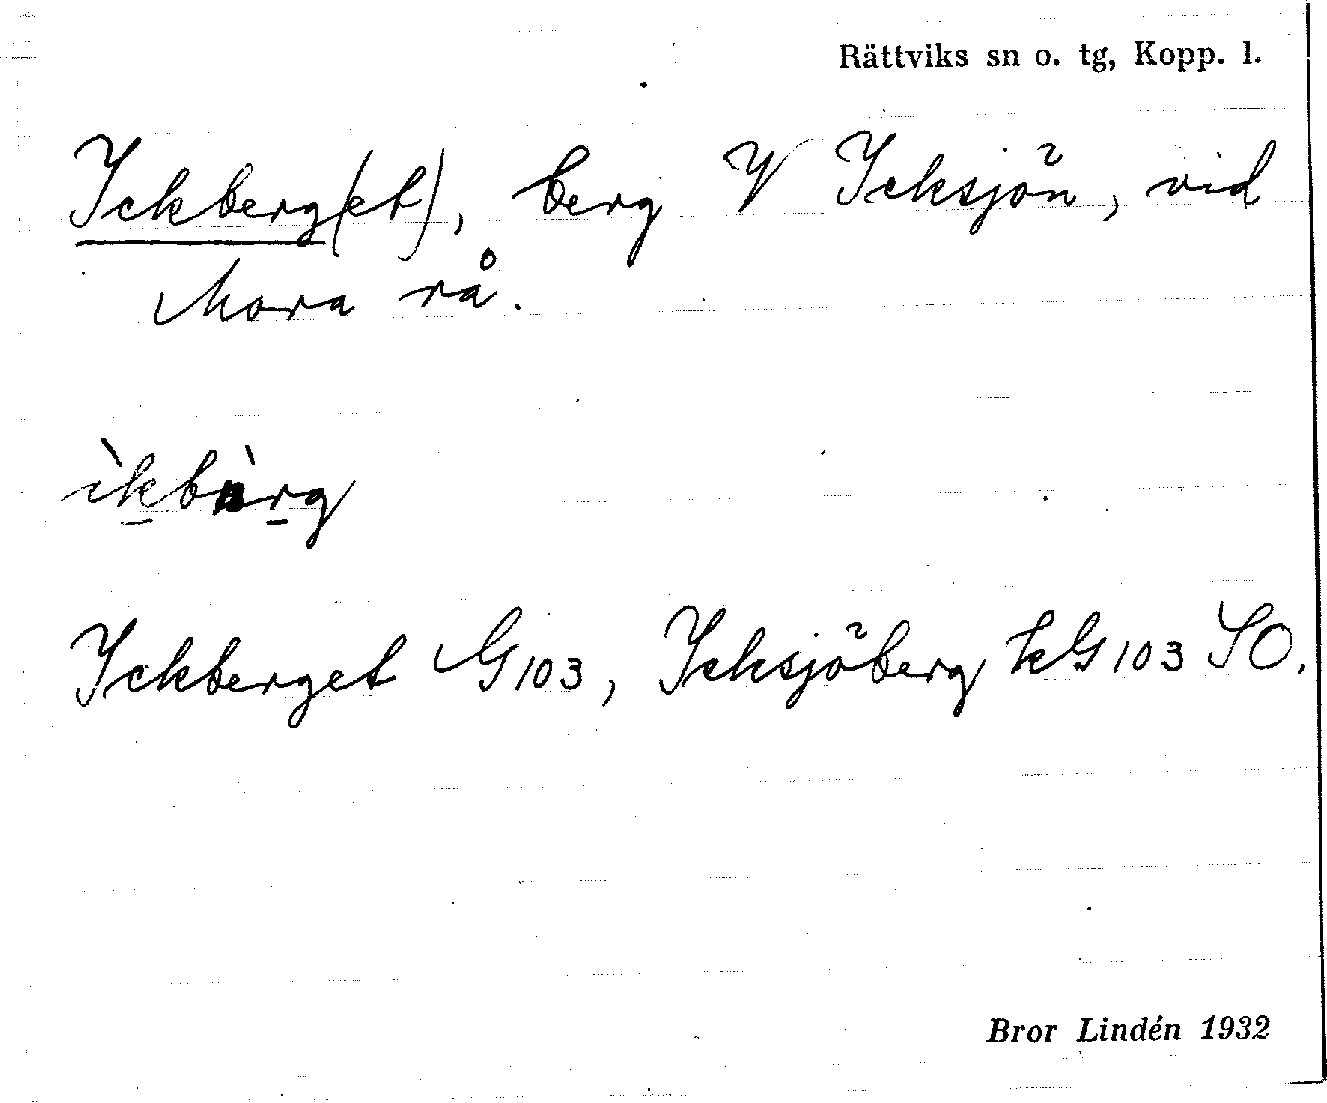 Rättviks sn o. tg, Kopp. l.
Ickberg(et), berg V Icksjön, vid
Mora rå.
Ickberget G103, Icksjöberg kG103 SO.
Bror Lindén 1932